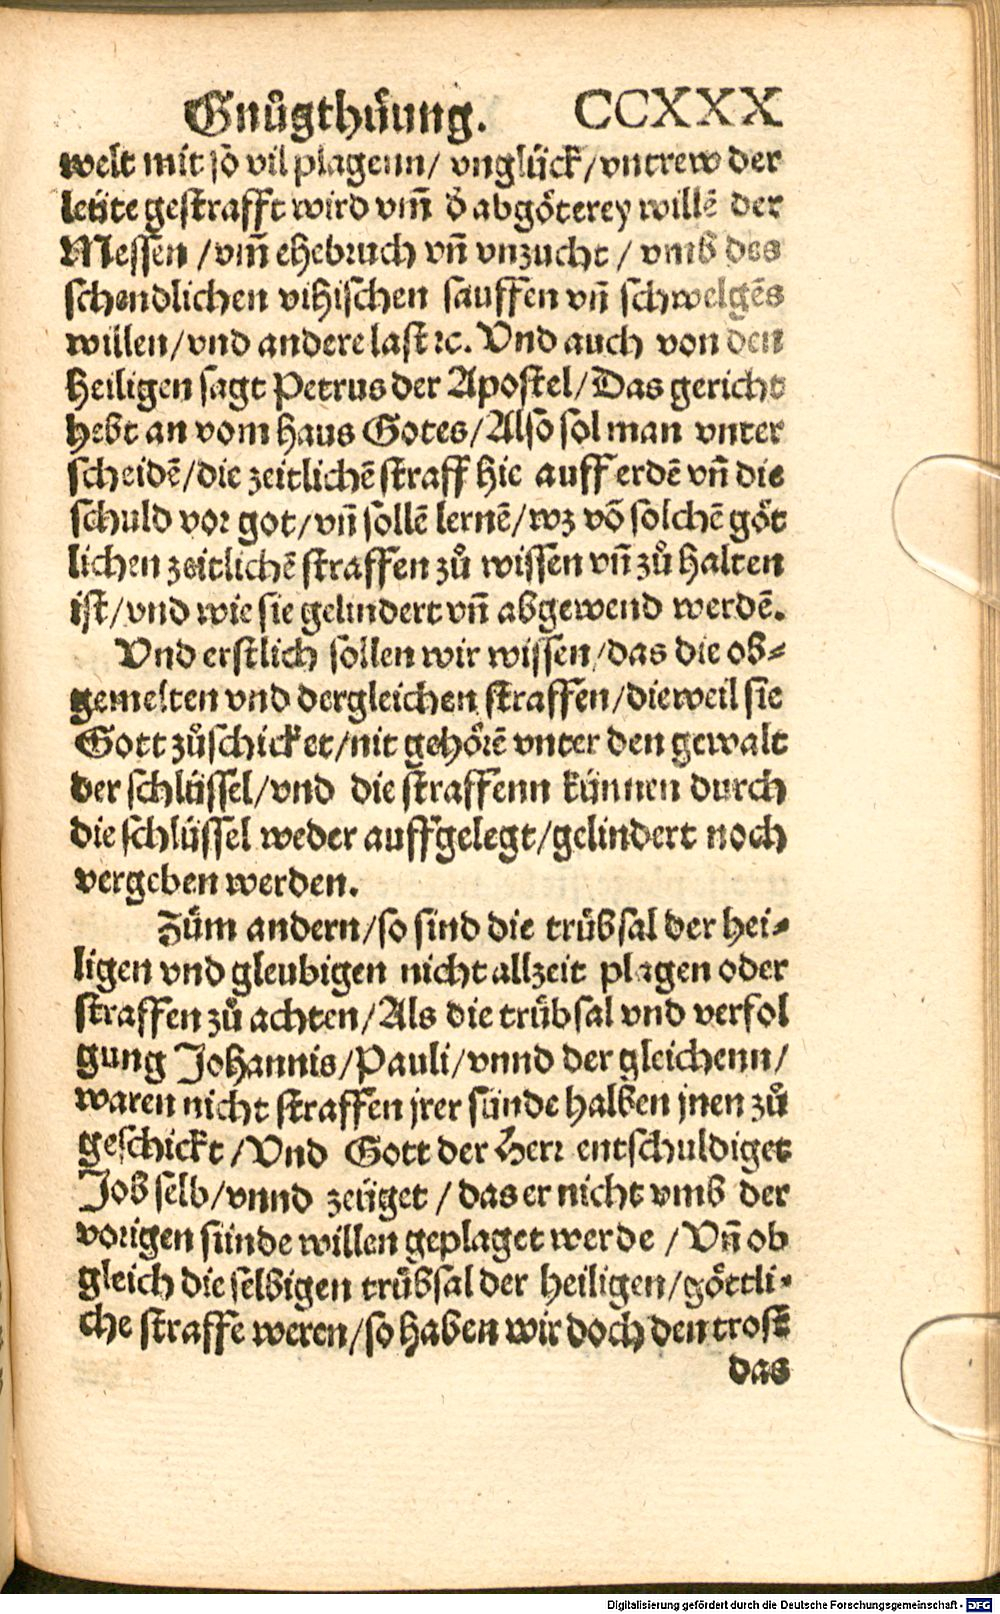 Gnůgthůung. CCXXX
welt mit so vil plagenn/ vnglück/vntrew der
leüte gestrafft wird vm̃ d̕ abgöterey willē der
Messen /vm̃ ehebruch vñ vnzucht / vmb des
schendlichen vihischen sauffen vñ schwelgēs
willen/vnd andere last ꝛc. Vnd auch von den
Heiligen sagt Petrus der Apostel/Das gericht
hebt an vom haus Gotes/Also sol man vnter
scheidē/die zeitlichē straff hie auff erdē vñ die
schuld vor got/vñ sollē lernē/wz vō solchē göt
lichen zeitlichē straffen zů wissen vñ zů halten
ist/vnd wie sie gelindert vñ abgewend werdē.
Vnd erstlich sollen wir wissen/das die ob-
gemelten vnd dergleichen straffen/dieweil sie
Gott zůschicket/nit gehörē vnter den gewalt
der schlüssel/vnd die straffenn künnen durch
die schlüssel weder auffgelegt/gelindert noch
vergeben werden.
Zům andern/so sind die trübsal der hei-
ligen vnd gleubigen nicht allzeit plagen oder
straffen zů achten/Als die trübsal vnd verfol
gung Johannis/Pauli/vnnd der gleichenn/
waren nicht straffen jrer sünde halben jnen zů
geschickt/Vnd Gott der Herr entschuldiget
Job selb/vnnd zeüget / das er nicht vmb der
vorigen sünde willen geplaget werde /Vñ ob
gleich die selbigen trübsal der heiligen/göttli-
che straffe weren/so haben wir doch den trost
das
Digitalisierung gefördert durch die Deutsche Forschungsgemeinschaft - DFG